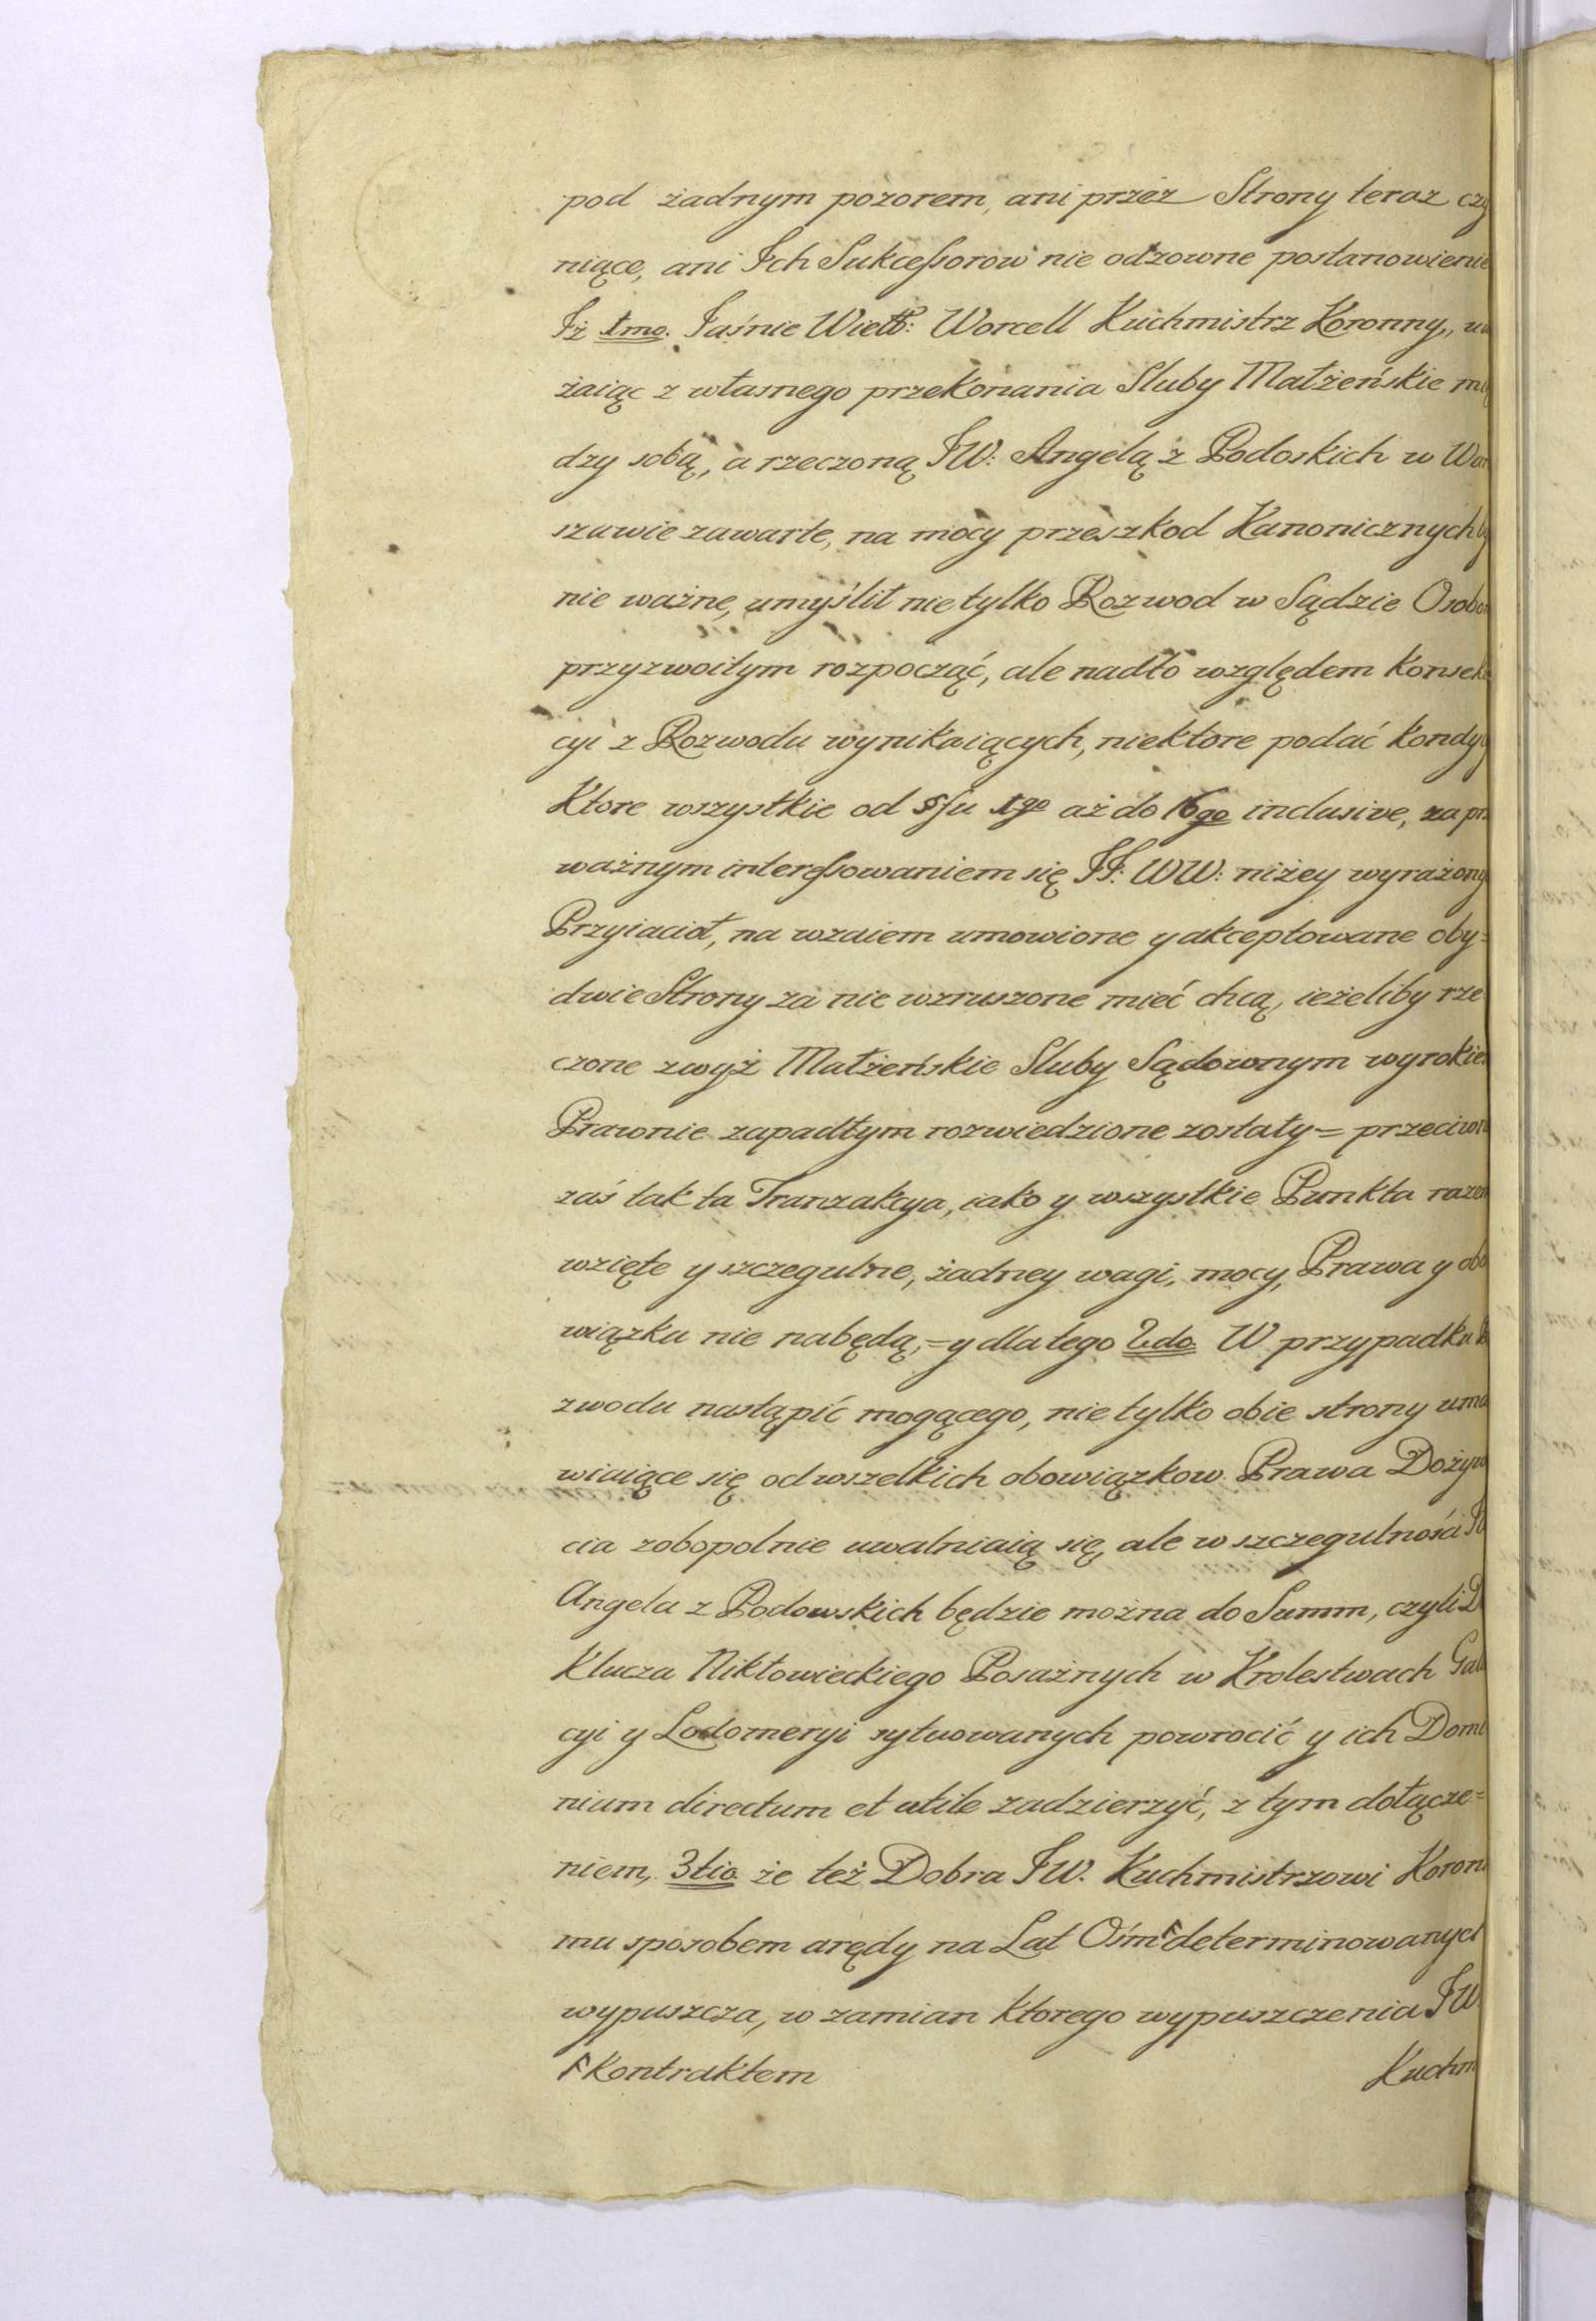 pod żadnym pozorem, ani przez Strony teraz czy
niące, ani Jch Sukceſsorow nie odzowne postanowienie
Jż 1mo. Jaśnie Wielb: Worcell Kuchmistrz Koronny, uw
żaiąc z własnego przekonania Sluby Małżeńskie mię
dzy sobą, a rzeczoną JW: Angelą z Podoskich w War
szawie zawarte, na mocy przeszkod Kanonicznych by
nie ważne, umyślił nie tylko Rozwod w Sądzie Osobom
przyzwoitym rozpocząć, ale nadto względem Konsek
cyi z Rozwodu wynikaiących, niektore podać Kondy
Ktore wszystkie od §ſu 1go aż do 16go inclusive, za prz
ważnym intereſsowaniem się JJ: WW: niżey wyrażony
Przyiacioł, na wzaiem umowione y akceptowane oby=
dwie Strony za nie wzruszone mieć chcą, ieżeliby rze
czone zwyż Małżeńskie Sluby Sądownym wyrokiem
Prawnie zapadłym rozwiedzione zostały = przeciwn
zaś tak ta Tranzakcya, iako y wszystkie Punkta razem
wzięte y szczegulne, żadney wagi, mocy, Prawa y obo
wiązku nie nabędą, = y dla tego 2do. W przypadku R
zwodu nastąpić mogącego, nie tylko obie strony uma
wiaiące się od wszelkich obowiązkow Prawa Dożywo
cia zobopolnie uwalniaią się, ale w szczegulności JW
Angela z Podowskich będzie można do Summ, czyli D
Klucza Niktowieckiego Posażnych w Krolestwach Gali
cyi y Lodomeryi sytuowanych powrocić y ich Domi
nium directum et utile zadzierżyć, z tym dołącze=
niem, 3tio. że też Dobra JW. Kuchmistrzowi Koronne
mu sposobem arędy na Lat Ośm F determinowanych
wypuszcza, w zamian Ktorego wypuszczenia JW
F Kontraktem
Kuchm